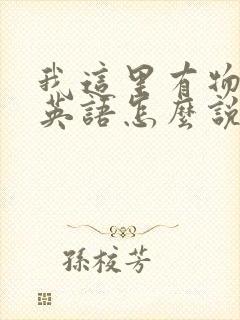 我這里有物
英語怎麼說
孫校芳